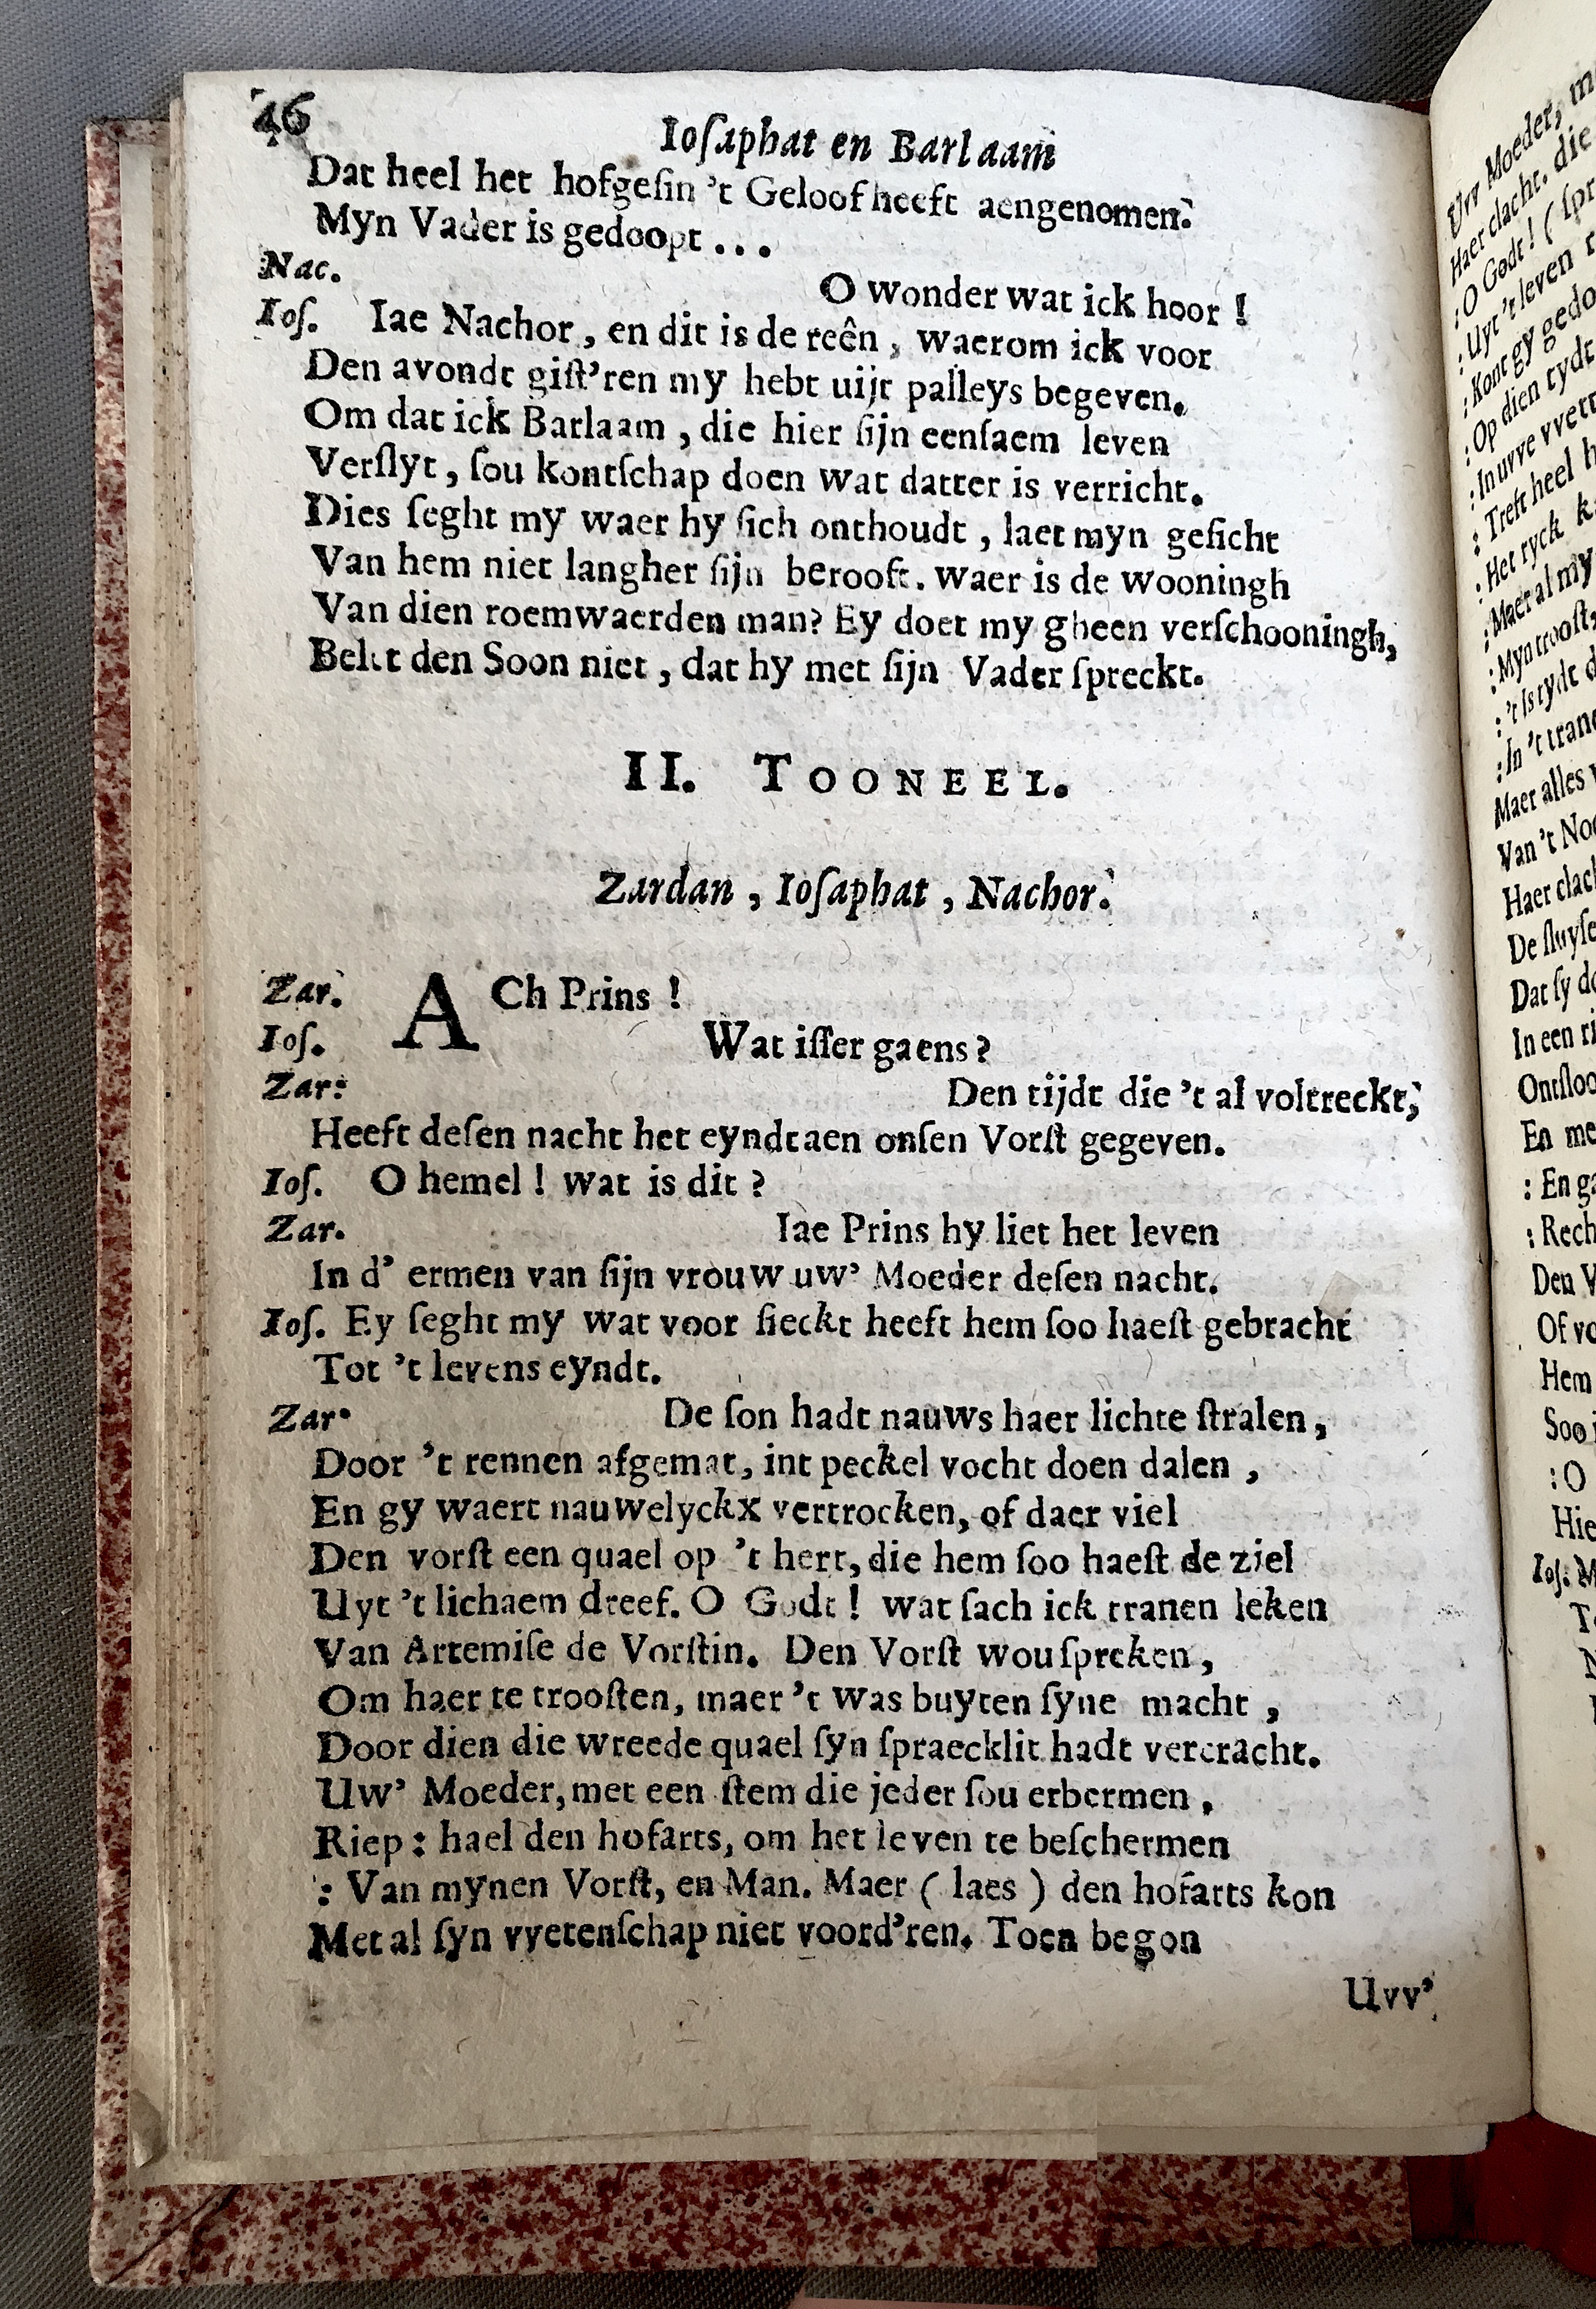 46
Ioſaphat en Barlaam
Dat heel het hofgeſin 't Geloof heeft aengenomen.
Myn Vader is gedoopt ...
Nac. O wonder wat ick hoor !
Ioſ. Iae Nachor , en dit is de reên , waerom ick voor
Den avondt giſt'ren my hebt uijt palleys begeven.
Om dat ick Barlaam , die hier ſijn eenſaem leven
Verſlyt , ſou kontſchap doen wat datter is verricht.
Dies ſeght my waer hy ſich onthoudt , laet myn geſicht
Van hem niet langher ſijn berooft. waer is de wooningh
Van dien roemwaerden man? Ey doet my gheen verſchooningh,
Belet den Soon niet , dat hy met ſijn Vader ſpreckt.
II. TOONEEL.
Zardan , Ioſaphat , Nachor.
Zar. ACh Prins !
Ioſ. Wat iſſer gaens ?
Zar: Den tijdt die 't al voltreckt,
Heeft deſen nacht het eyndt aen onſen Vorſt gegeven.
Ioſ. O hemel ! wat is dit ?
Zar. Iae Prins hy liet het leven
In d' ermen van ſijn vrouw uw' Moeder deſen nacht.
Ioſ. Ey ſeght my wat voor ſieckt heeft hem ſoo haeſt gebracht
Tot 't levens eyndt.
Zar. De ſon hadt nauws haer lichte ſtralen ,
Door 't rennen afgemat, int peckel vocht doen dalen ,
En gy waert nauwelyckx vertrocken, of daer viel
Den vorſt een quael op 't hert, die hem ſoo haeſt de ziel
Uyt 't lichaem dreef. O Godt ! wat ſach ick tranen leken
Van Artemiſe de Vorſtin. Den Vorſt wou ſpreken ,
Om haer te trooſten, maer 't was buyten ſyne macht ,
Door dien die wreede quael ſyn ſpraecklit hadt vercracht.
Uw' Moeder, met een ſtem die jeder ſou erbermen ,
Riep : hael den hofarts, om het leven te beſchermen
: Van mynen Vorſt, en Man. Maer ( laes ) den hofarts kon
Met al ſyn vvetenſchap niet voord'ren. Toen begon
Uvv'